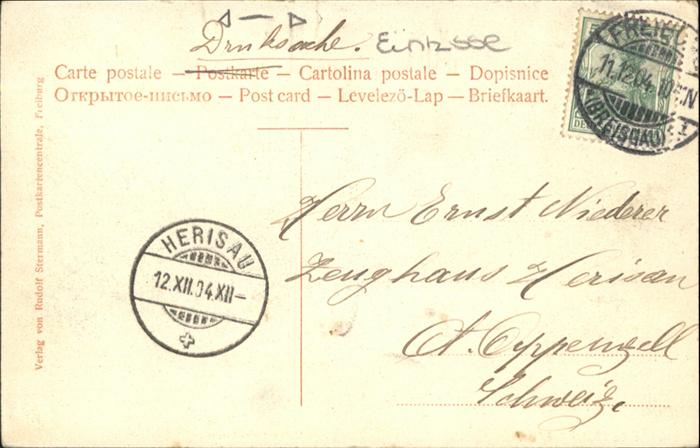 Drucksache.
Carte postale — Postkarte — Cartolina postale — Dopisnice
Открытое-письмо — Post card — Levelező-Lap — Briefkaart.
Verlag von Rudolf Stermann, Postkartencentrale, Freiburg
11.12.04
(BREISGAU)
HERISAU
12.XII.04.XII—
Herrn Ernst Niederer
Zeughaus Herisau
Ct. Appenzell
Schweiz.